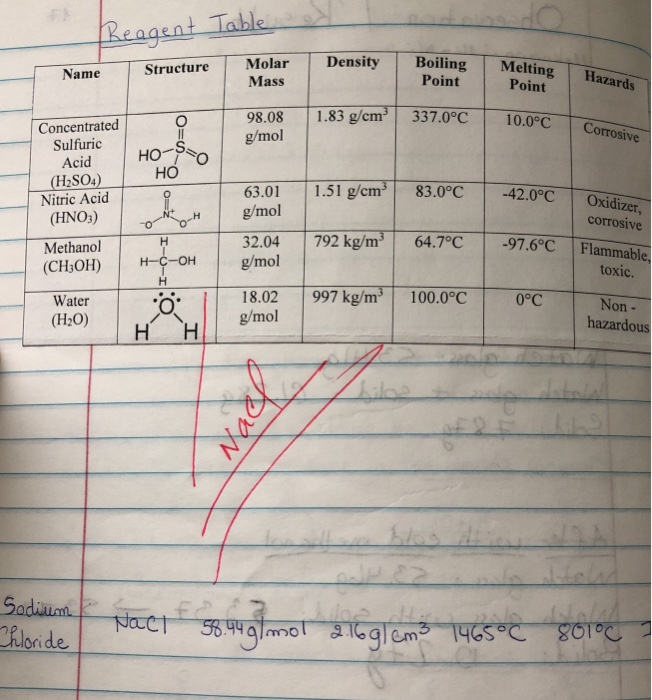 Reagent Table
Name Structure Molar Mass Density Boiling Point Melting Point Hazards
Concentrated Sulfuric Acid (H₂SO₄) O S O HO HO 98.08 g/mol 1.83 g/cm³ 337.0°C 10.0°C Corrosive
Nitric Acid (HNO₃) O N⁺ ⁻O O H 63.01 g/mol 1.51 g/cm³ 83.0°C -42.0°C Oxidizer, corrosive
Methanol (CH₃OH) H H-C-OH H 32.04 g/mol 792 kg/m³ 64.7°C -97.6°C Flammable, toxic.
Water (H₂O) O H H 18.02 g/mol 997 kg/m³ 100.0°C 0°C Non - hazardous
NaCl
Sodium Chloride NaCl 58.44 g/mol 2.16 g/cm³ 1465°C 801°C